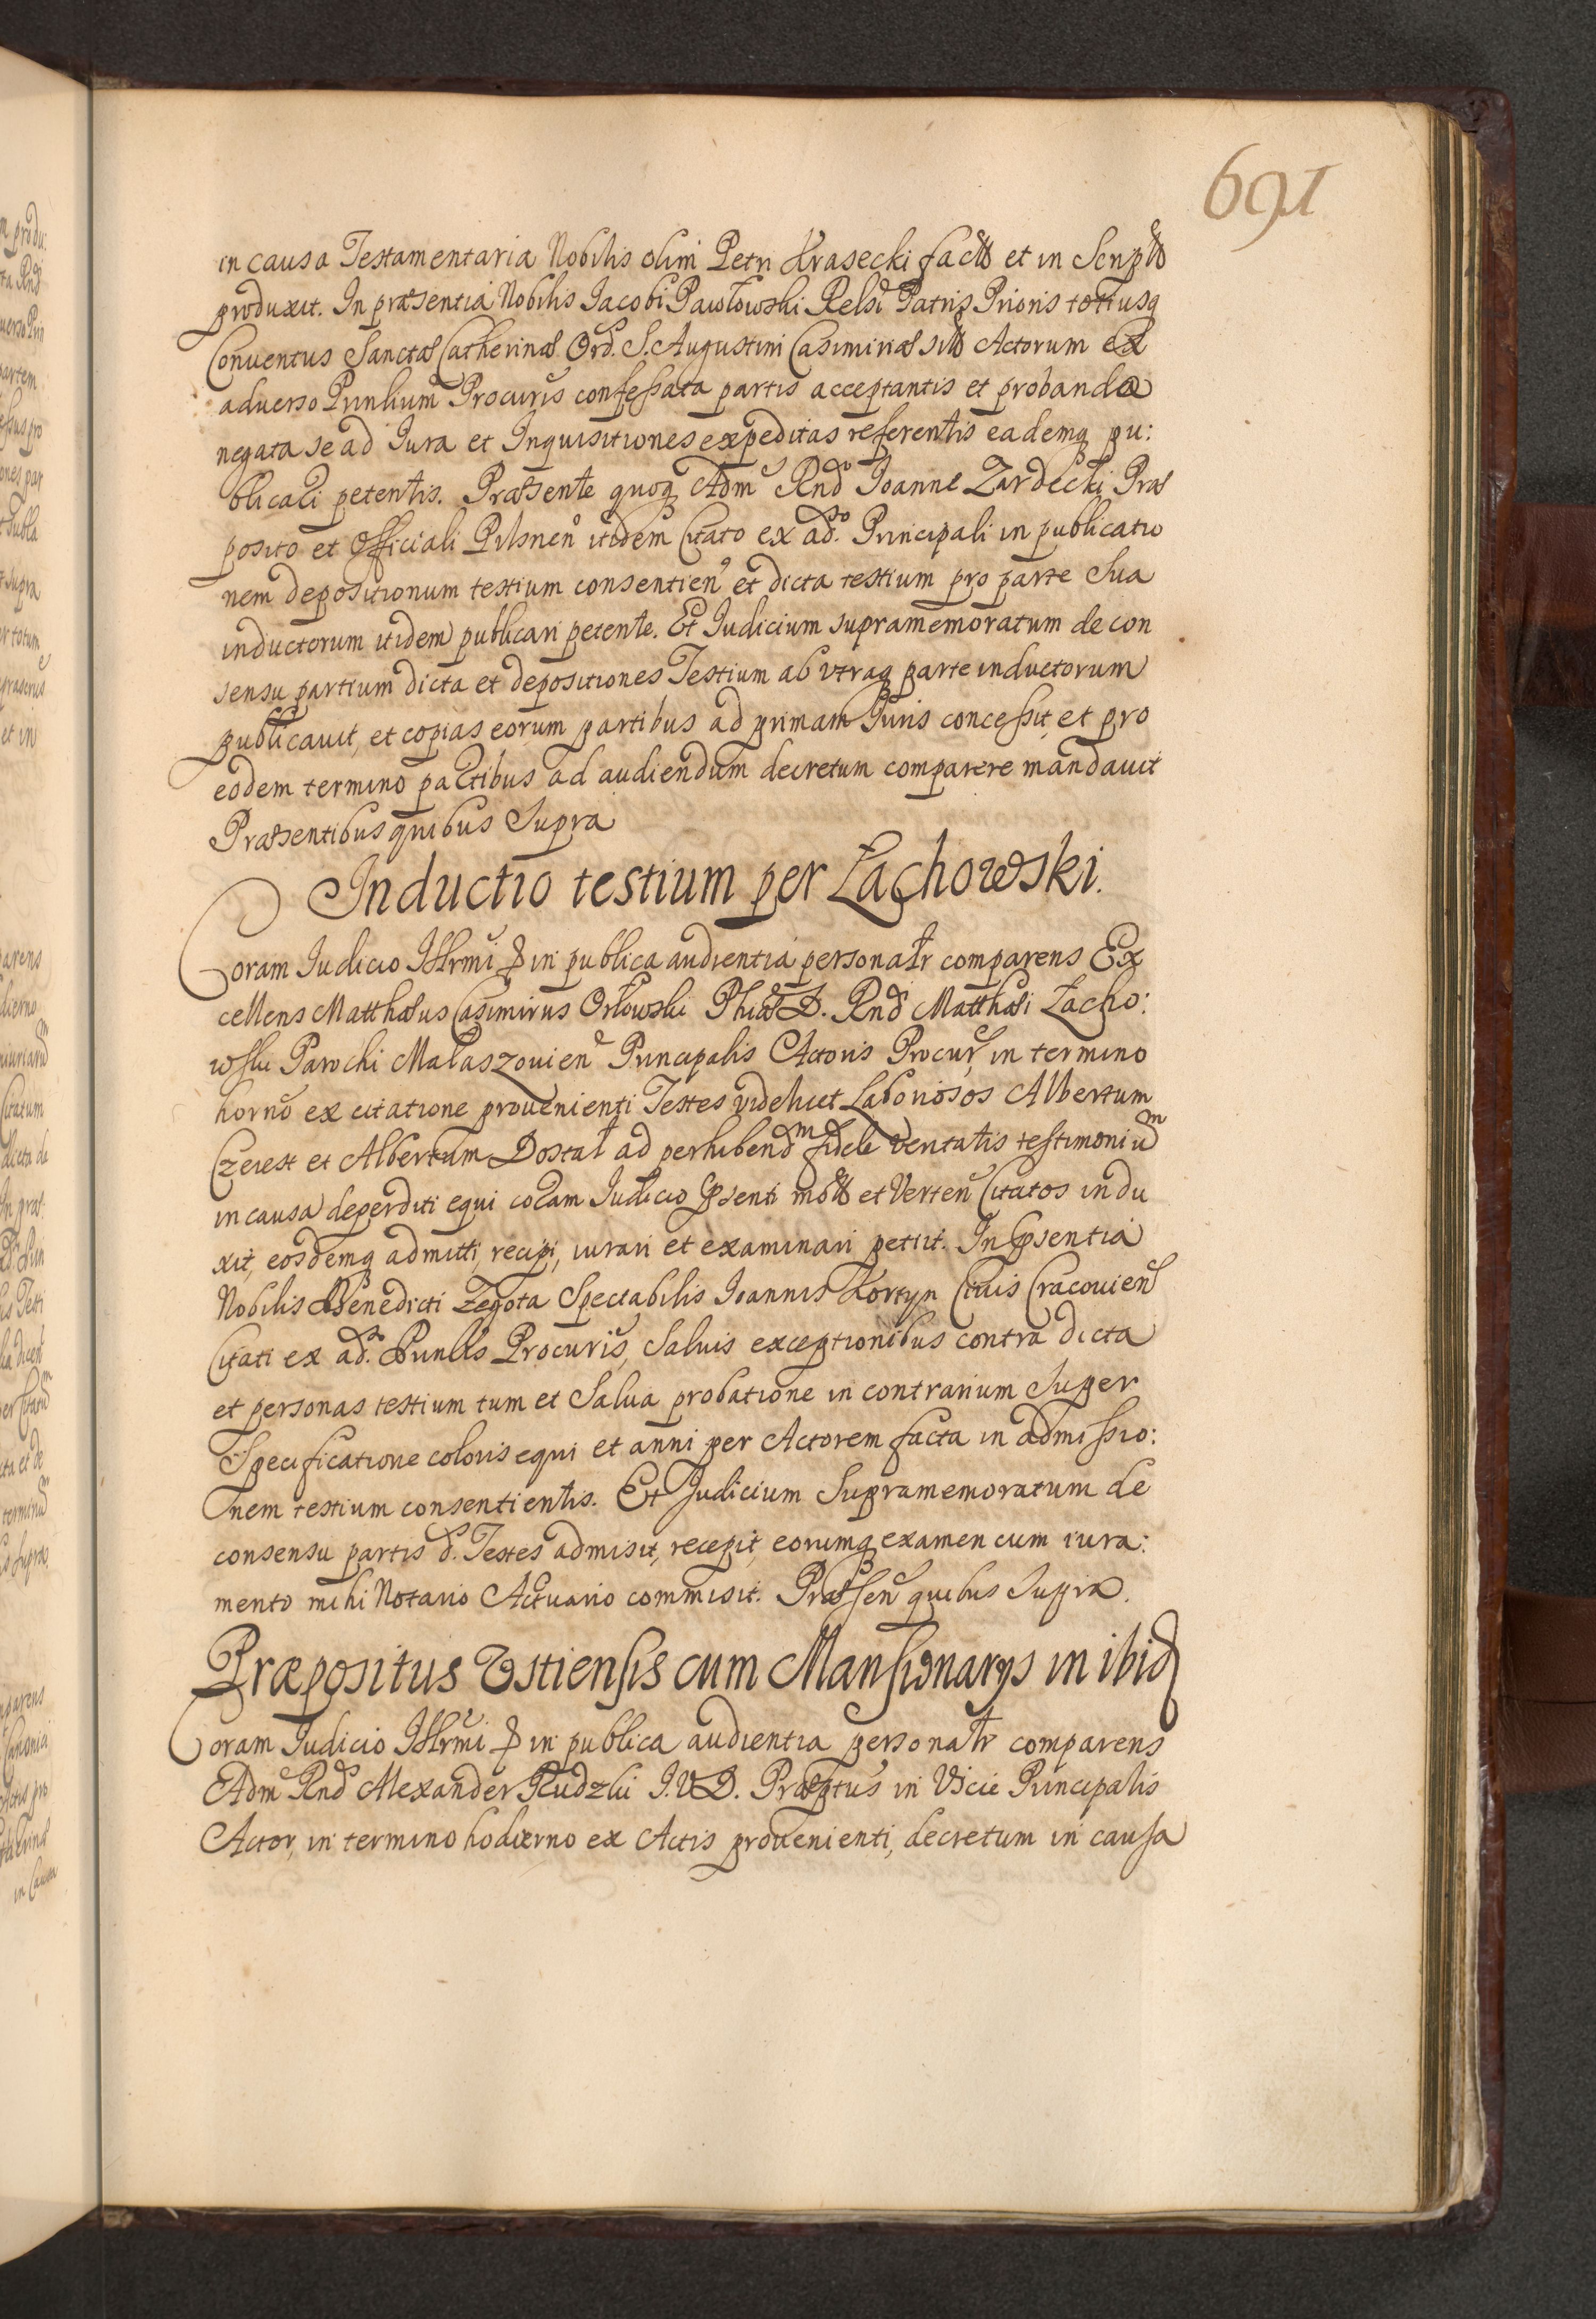 691
in causa Testamentaria Nobilis olim Petri Krasecki fact et in Script
produxit. In præsentia Nobilis Jacobi Pawłowski Relsi Patris Prioris totiusq
Conuentus Sanctæ Catherinæ Ord. S. Augustini Casimiriæ sit Actorum ex
aduerso Prinlium Procuris confessata partis acceptantis et probanda
negata se ad Iura et Inquisitiones expeditas referentis eademq pu:
blicari petentis. Præsente quoq Adm Rndo Joanne Zardecki Præ
posito et Officiali Pilsnen itidem Citato ex adso. Principali in publicatio
nem depositionum testium consentien et dicta testium pro parte sua
inductorum itidem publicari petente. Et Judicium supramemoratum de con
sensu partium dicta et depositiones Testium ab vtraq parte inductorum
publicauit, et copias eorum partibus ad primam Iuris concessit, et pro
eodem termino partibus ad audiendum decretum comparere mandauit
Præsentibus quibus Supra
Inductio testium per Łachowski.
Coram Judicio Illrmi & in publica audientia personatr comparens Ex
cellens Matthæus Casimirus Orłowski Phiæ D. Rndi Matthæi Łacho:
wski Parochi Małaszouien Principalis Actoris Procur, in termino
horno ex citatione prouenienti Testes videlicet Laboriosos Albertum
Czeiest et Albertum Dostał ad perhibendm fidele veritatis testimonium
in causa deperditi equi coram Judicio psenti mot et Verten Citatos indu
xit, eosdemq admitti, recipi, iurari et examinari petiit. In psentia
Nobilis Benedicti Zegota Spectabilis Joannis Kortyn Ciuis Cracouien
Citati ex adso. Prinlis Procuris, saluis exceptionibus contra dicta
et personas testium tum et Salua probatione in contrarium Super
Specificatione coloris equi et anni per Actorem facta in admissio:
nem testium consentientis. Et Judicium Supramemoratum de
consensu partis d. Testes admisit, recepit, eorumq examen cum iura:
mento mihi Notario Actuario commisit. Præsen quibus Supra.
Præpositus Vstiensis cum Mansionarys in ibid
Coram Judicio Illrmi & in publica audientia personatr comparens
Adm Rnds Alexander Rudzki J.V.D. Præptus in Vscie Principalis
Actor, in termino hodierno ex Actis prouenienti, decretum in causa